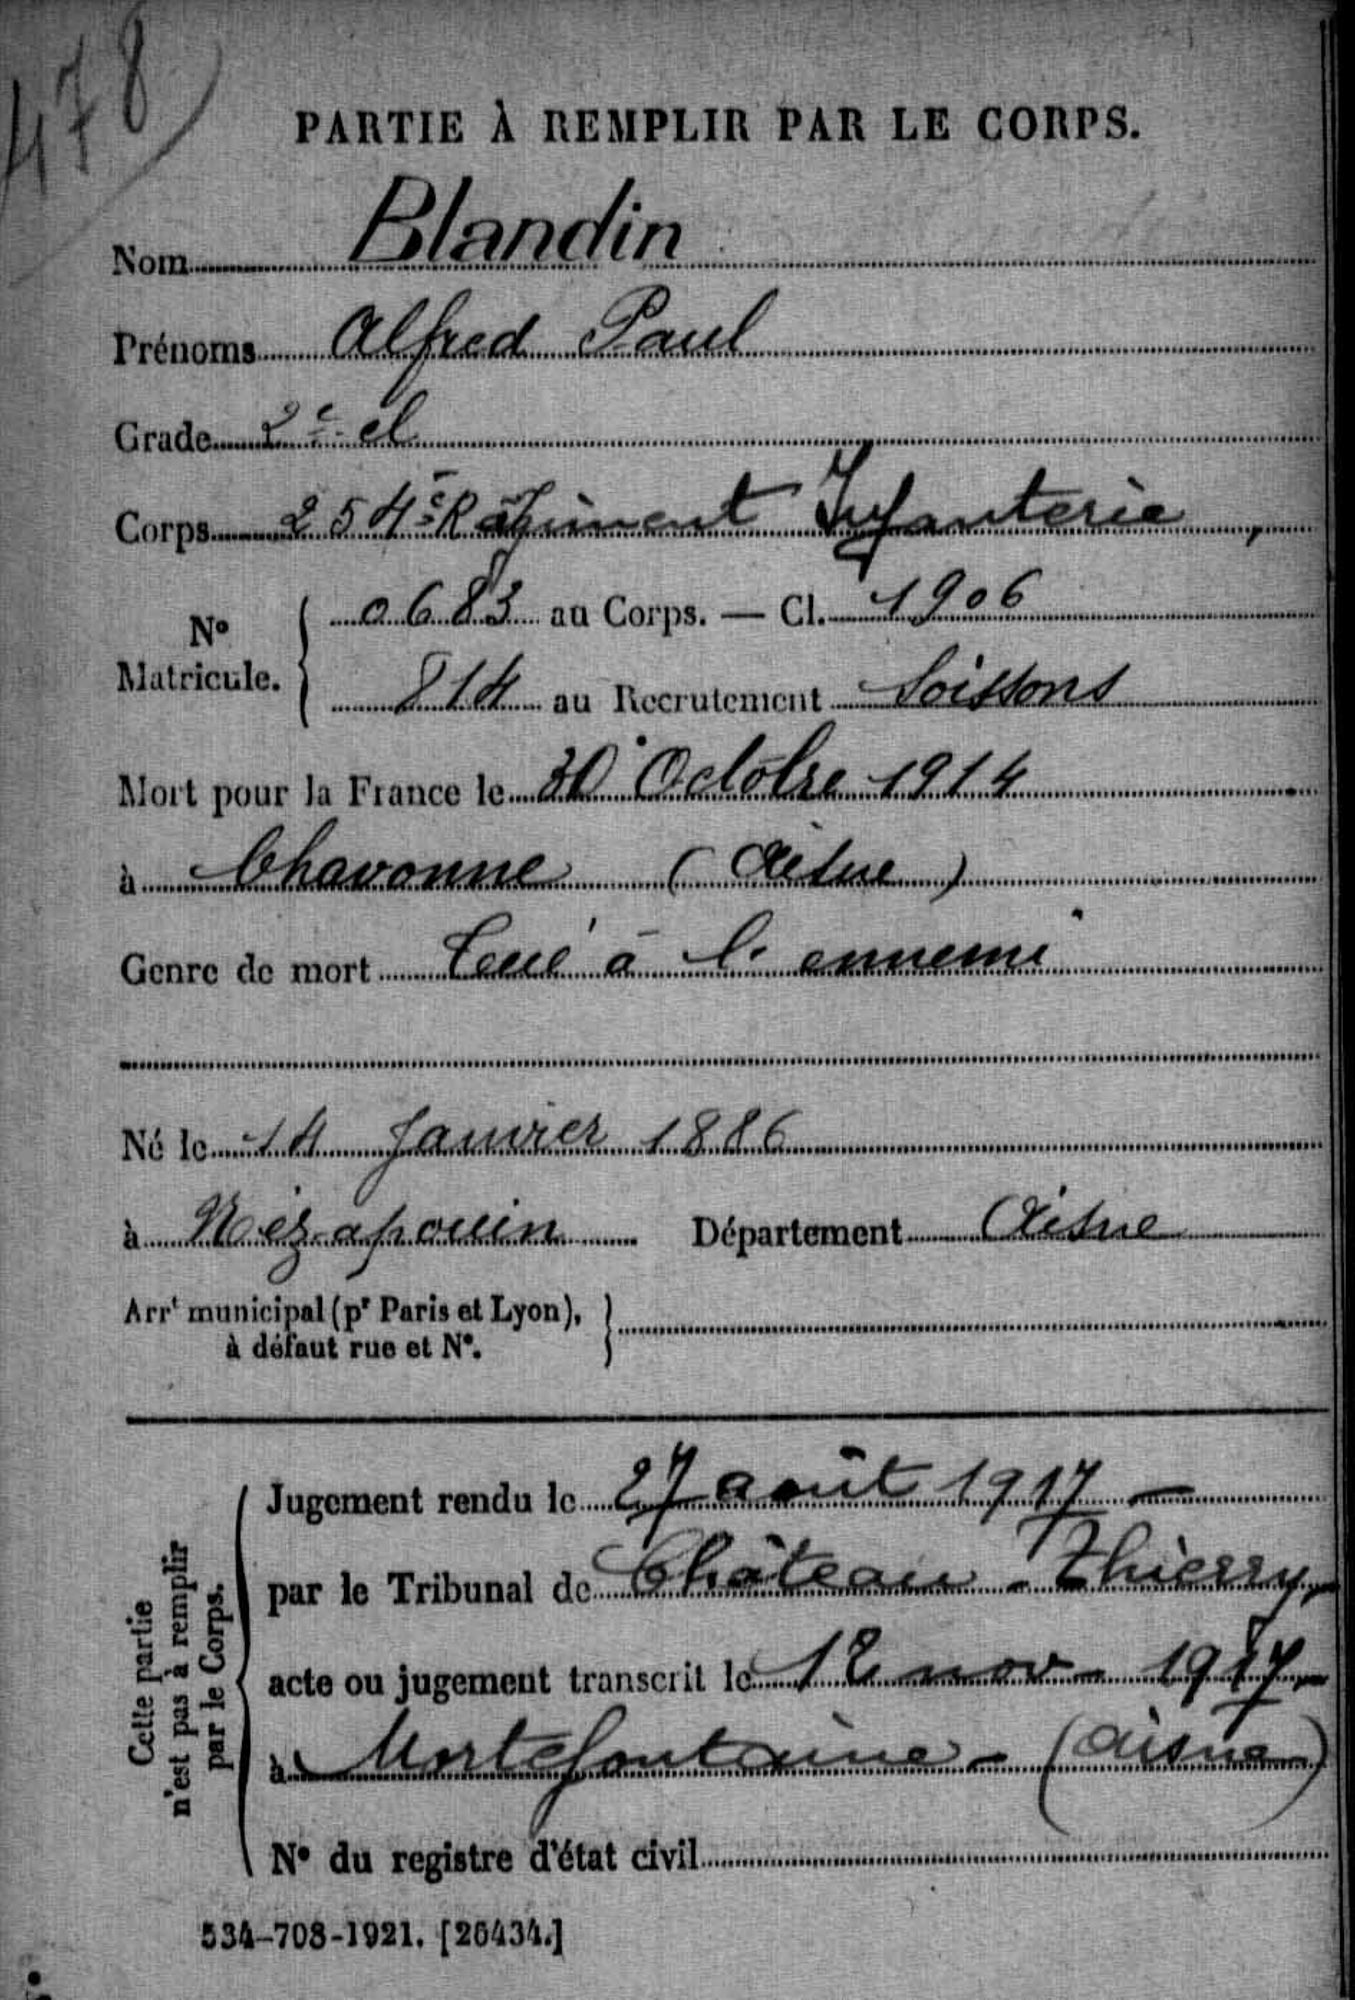 478
PARTIE À REMPLIR PAR LE CORPS.
Nom Blandin
Prénoms Alfred Paul
Grade 2e cl
Corps 254e Régiment Infanterie
No Matricule. 0683 au Corps. — Cl. 1906
814 au Recrutement Soissons
Mort pour la France le 30 Octobre 1914
à Chavonne (Aisne)
Genre de mort Tué à l'ennemi
Né le 14 Janvier 1886
à Nézapouin Département Aisne
Arrt municipal (pr Paris et Lyon),
à défaut rue et No.
Cette partie
n'est pas à remplir
par le Corps.
Jugement rendu le 27 août 1917 -
par le Tribunal de Château-Thierry
acte ou jugement transcrit le 12 nov- 1917-
à Mortefontaine - (Aisne)
No du registre d'état civil
534-708-1921. [26434.]